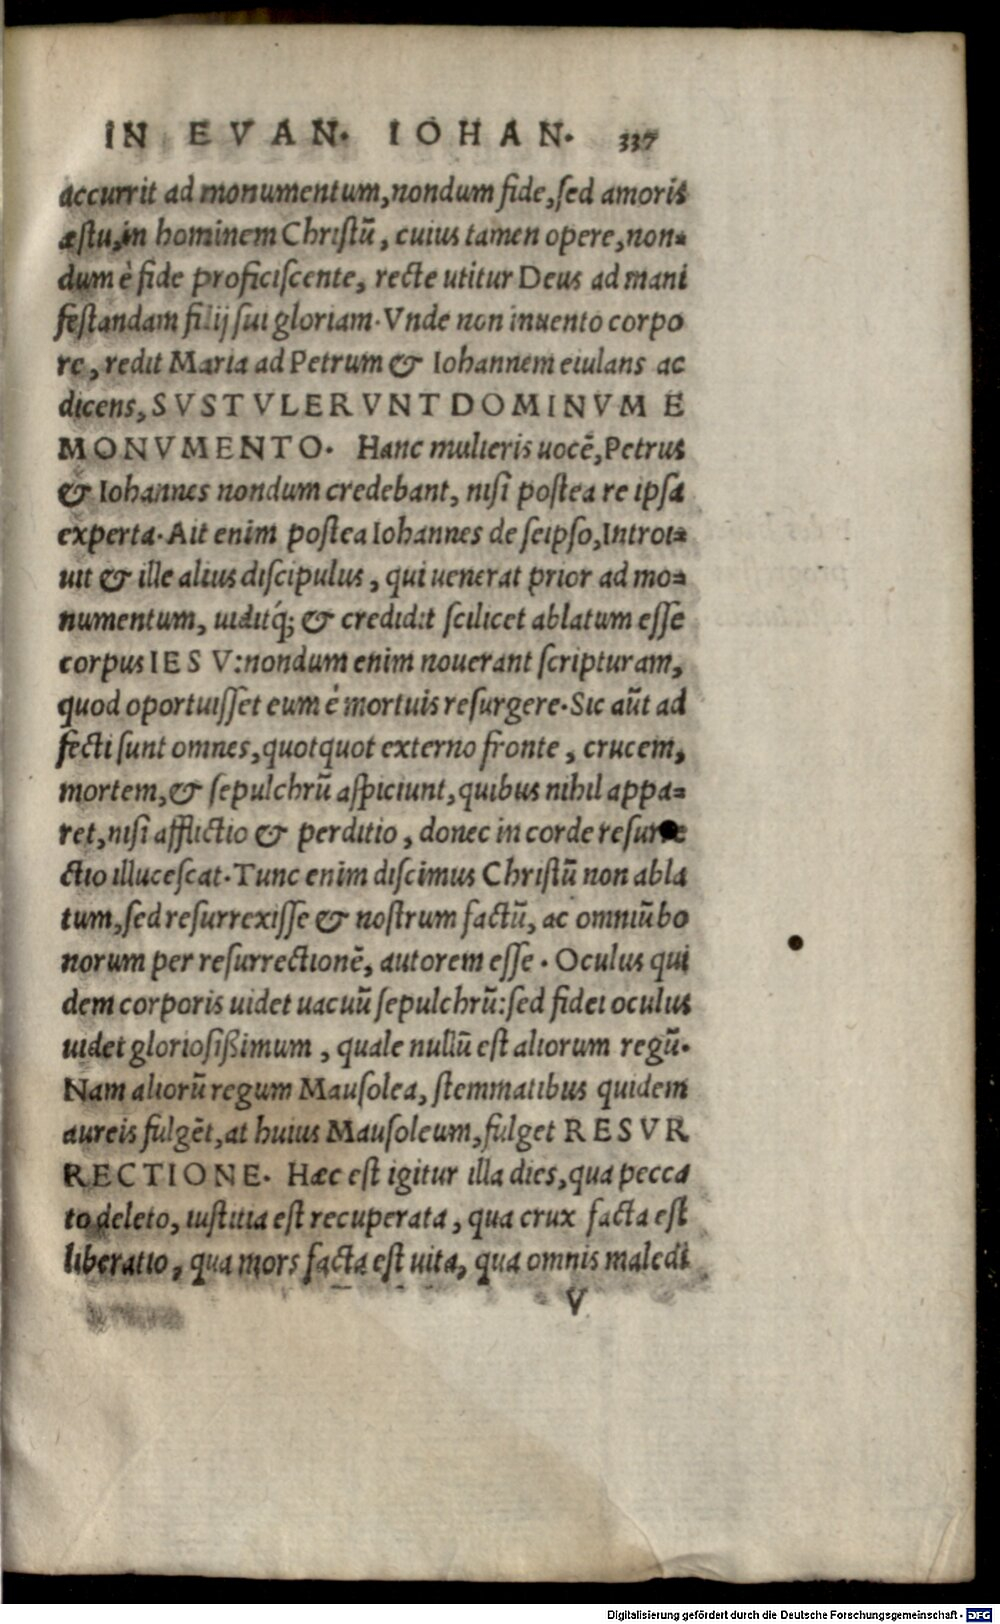 IN EVAN. IOHAN. 337
accurrit ad monumentum, nondum fide, sed amoris
æstu, in hominem Christũ, cuius tamen opere, non=
dum è fide proficiscente, recte utitur Deus ad mani
festandam filij sui gloriam. Vnde non inuento corpo
re, redit Maria ad Petrum & Iohannem eiulans ac
dicens, SVSTVLERVNT DOMINVM E
MONVMENTO. Hanc mulieris uocẽ, Petrus
& Iohannes nondum credebant, nisi postea re ipsa
experta. Ait enim postea Iohannes de seipso, Introi=
uit & ille alius discipulus, qui uenerat prior ad mo=
numentum, uiditq́; & credidit scilicet ablatum esse
corpus IESV: nondum enim nouerant scripturam,
quod oportuisset eum è mortuis resurgere. Sic aũt ad
fecti sunt omnes, quotquot externo fronte, crucem,
mortem, & sepulchrũ aspiciunt, quibus nihil appa=
ret, nisi afflictio & perditio, donec in corde resurre
ctio illucescat. Tunc enim discimus Christũ non abla
tum, sed resurrexisse & nostrum factũ, ac omniũ bo
norum per resurrectionẽ, autorem esse. Oculus qui
dem corporis uidet uacuũ sepulchrũ: sed fidei oculus
uidet gloriosißimum, quale nullũ est aliorum regũ.
Nam aliorũ regum Mausolea, stemmatibus quidem
aureis fulgẽt, at huius Mausoleum, fulget RESVR
RECTIONE. Hæc est igitur illa dies, qua pecca
to deleto, iustitia est recuperata, qua crux facta est
liberatio, qua mors facta est uita, qua omnis maledi
V
Digitalisierung gefördert durch die Deutsche Forschungsgemeinschaft - DFG